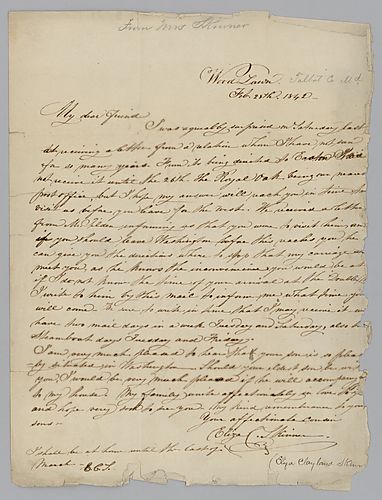 From Mrs Skinner
Wood Lawn Talbot Co Md.
Feb. 28th. 1842
My dear friend
I was agreeably surprised on Saturday last
at receiving a letter from a relation whom I have not seen
for so many years. From its being directed to Easton I did
not receive it until the 26th. The Royal Oak being our nearest
post office, but I hope my answer will reach you in time to
visit us before you leave for the west. We received a letter
from Mr. Elder informing us that you were to visit him, and
if you should leave Washington before this reaches you he
can give you the directions where to stop that my carriage
meet you as he knows the inconvenience you would be
if I do not know the time of your arrival at the
I write to him by this mail to inform me what time you
will come to me to write in time that I may receive it
have two mail days in a week Tuesday and Saturday, also
Steamboat days Tuesday and Friday.
I am very much pleased to hear that your son is so
situated in Washington. Should your eldest son be with
you I would be very much pleased if he will accompany
to my house. My family unite affectionately in love to
and hope very soon to see you. My kind remembrance to your
sons –
Your affectionate cousin
Eliza C. Skinner
I shall be at home until the last of
March – E C S.
(Eliza Claylana Skinner